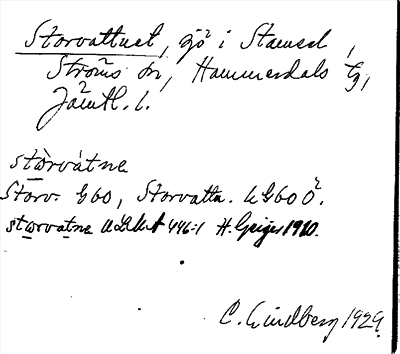 Storvattnet, sjö i
Ströms sn, Hammerdals tg,
Jämtl. l.
stòrvátne
Storv. G60, Storvattn. G60 Ö.
storvatne 446:1 H. Geijer 1910.
C. Lindberg 1929.